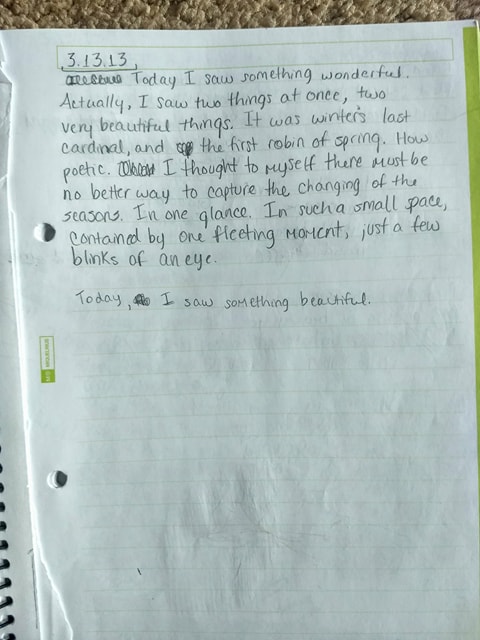 3.13.13
Today I saw something wonderful.
Actually, I saw two things at once, two
very beautiful things. It was winter's last
cardinal, and the first robin of spring. How
poetic. I thought to myself there must be
no better way to capture the changing of the
seasons. In one glance. In such a small space,
contained by one fleeting moment, just a few
blinks of an eye.
Today, I saw something beautiful.